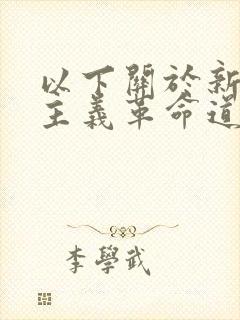 以下關於新
主義革命道
李學武